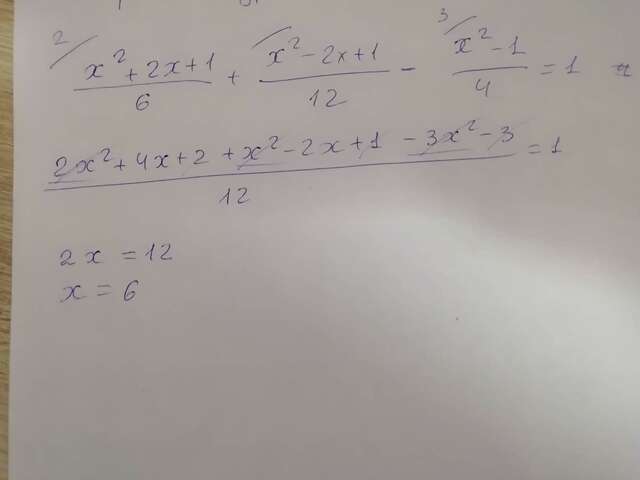 2/ (x²+2x+1)/6 + /(x²-2x+1)/12 - 3/ (x²-1)/4 = 1
(2x²+4x+2+x²-2x+1-3x²-3)/12 = 1
2x = 12
x = 6